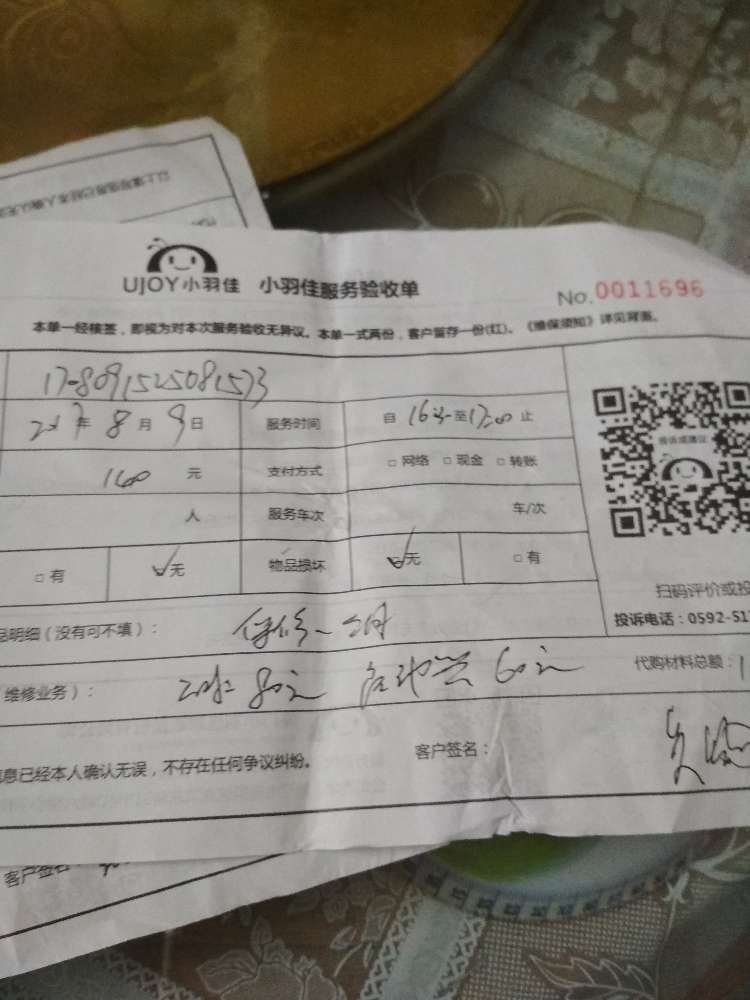 UJOY小羽佳 小羽佳服务验收单 No.0011696
本单一经核签,即视为对本次服务验收无异议。本单一式两份,客户留存一份(红)。《维保须知》详见背面。
17-8091525081573
2017年8月9日 服务时间 自 至17:00止
元 支付方式 □网络 □现金 □转账
人 服务车次 车/次
□有 ☑无 物品损坏 ☑无 □有
扫码评价或投
品明细(没有可不填): 保修一个月
投诉电话:0592-51
维修业务): 80元 60元 代购材料总额:1
息已经本人确认无误,不存在任何争议纠纷。 客户签名:
客户签名: